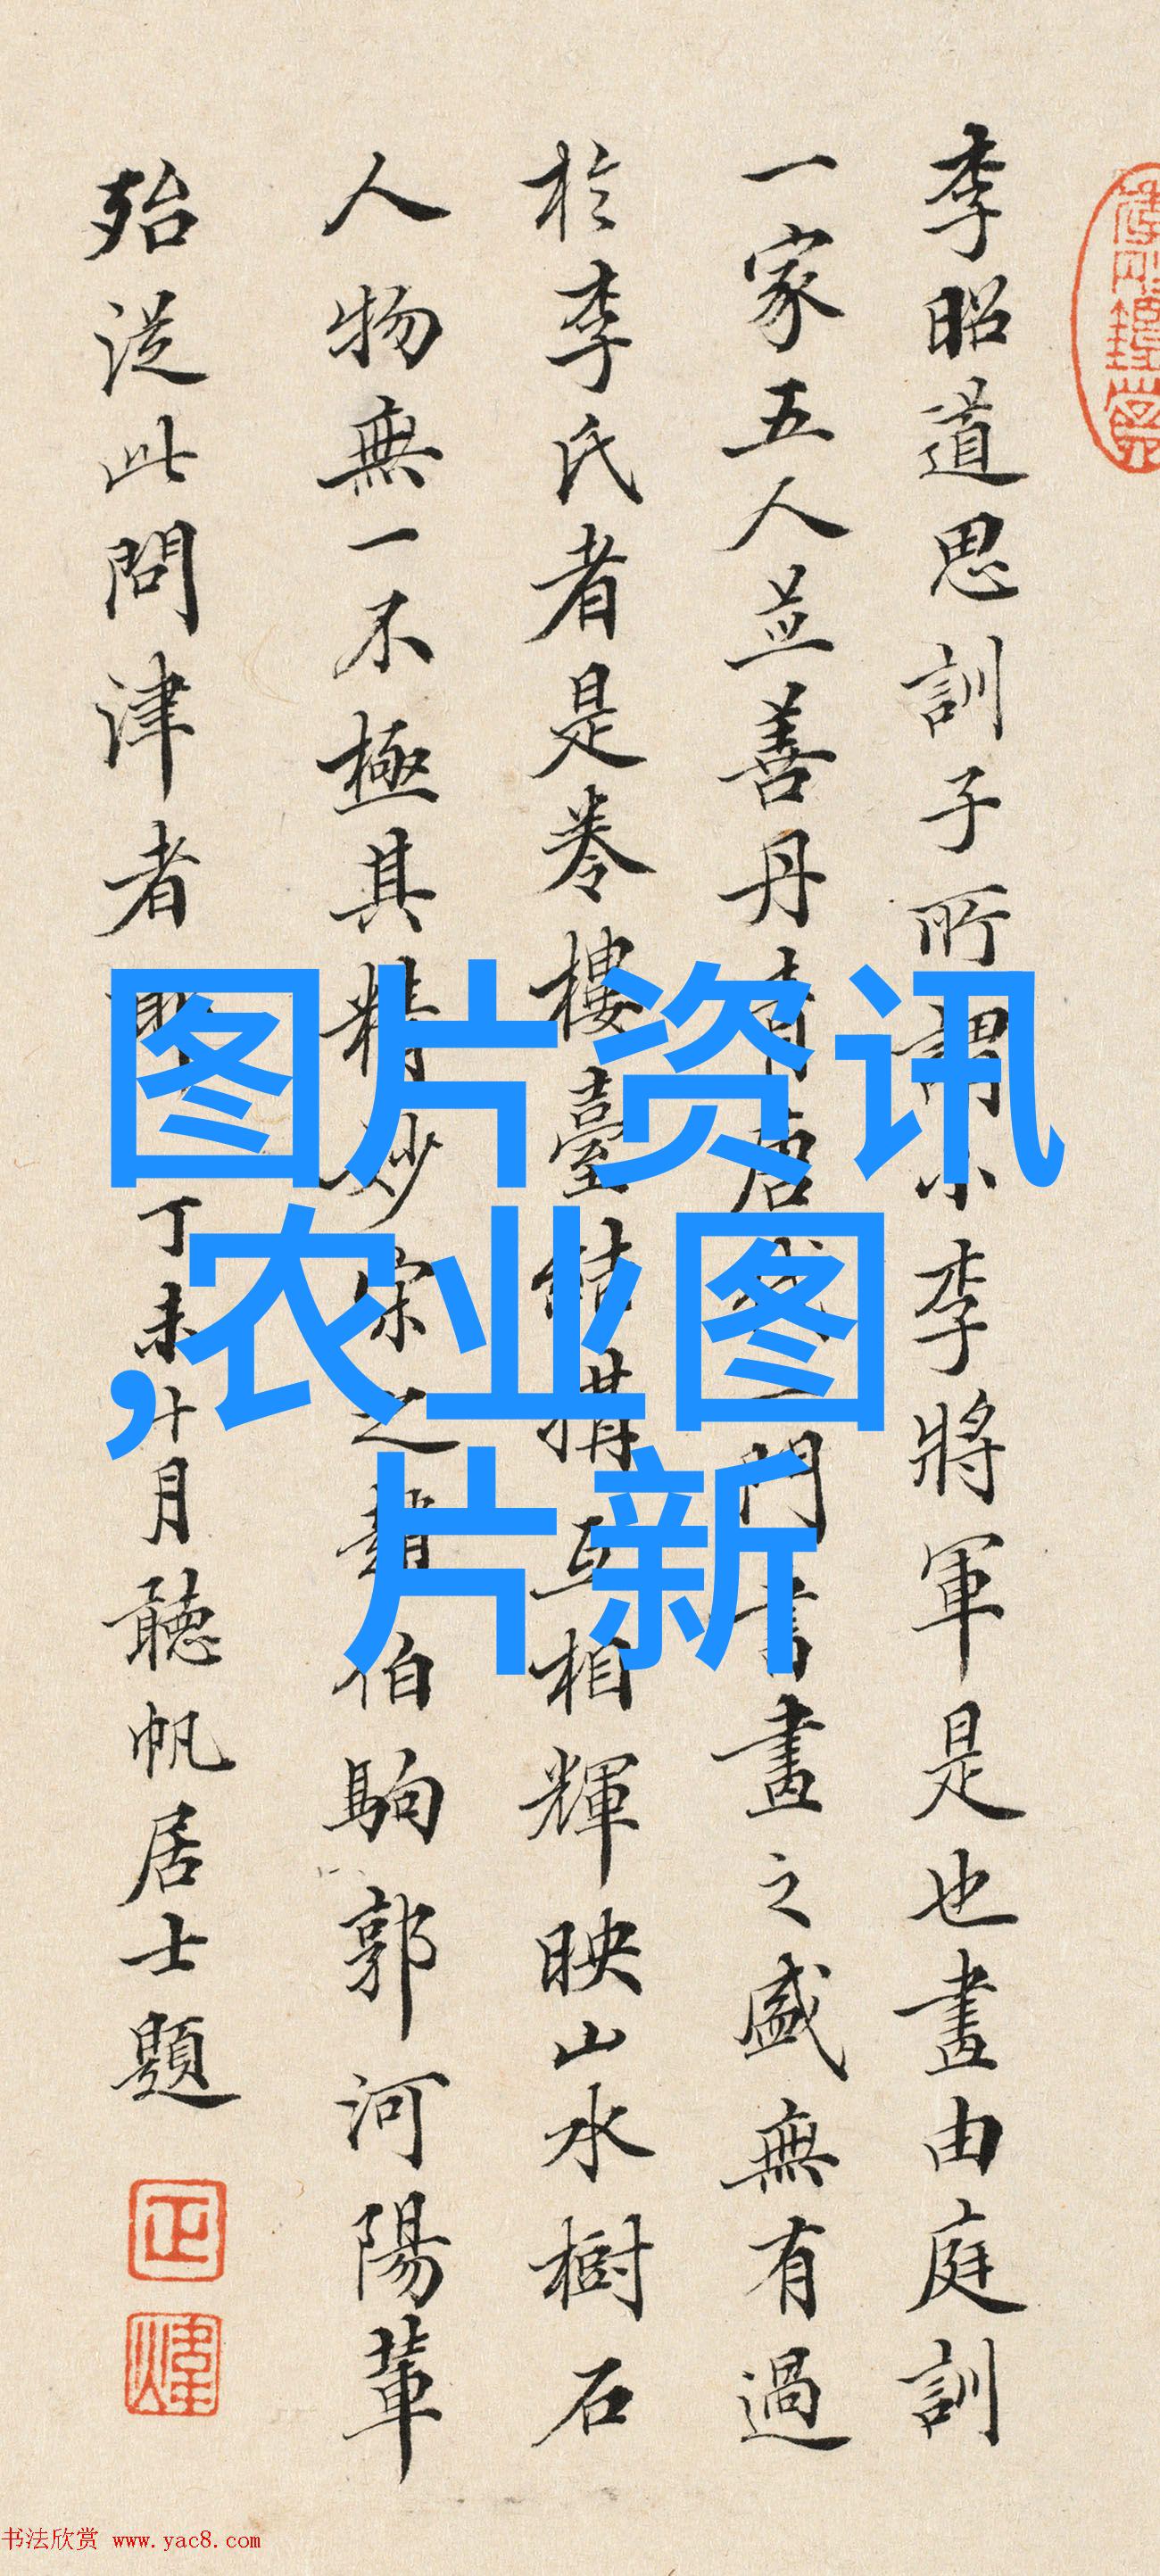 李昭道思訓子所謂小李將軍是也畫由庭訓
一家五人並善丹青唐代一門書畫之盛無有過
於李氏者是卷樓臺結構互相輝映山水樹石
人物無一不極其精妙宋之趙伯駒郭河陽輩
殆從此問津者耶 丁未十月聽帆居士題
正
煒
图片资讯
,农业图
片新
书法欣赏 www.yac8.com